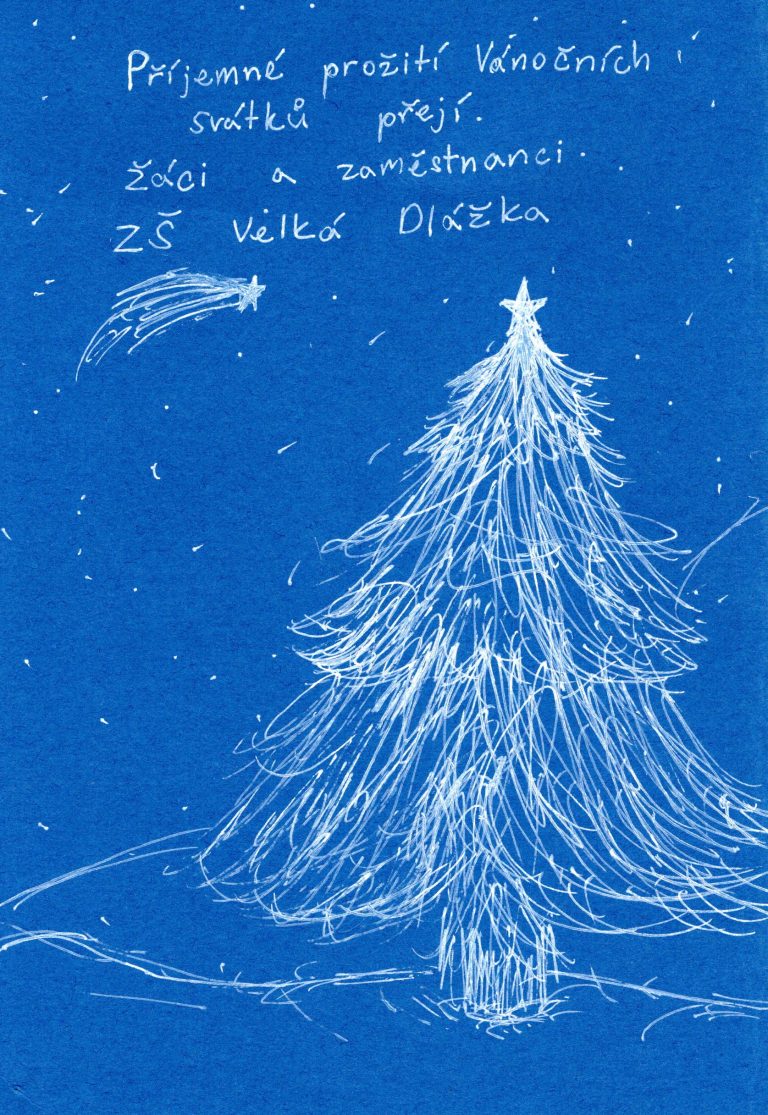 Příjemné prožití Vánočních
svátků přejí.
žáci a zaměstnanci.
ZŠ Velká Dlážka